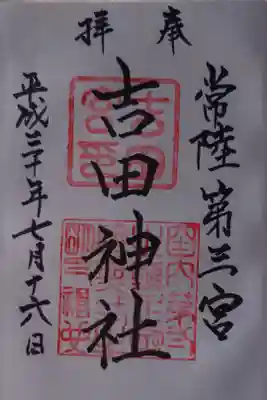 奉拝
常陸第三宮
吉田神社
平成三十年七月十六日